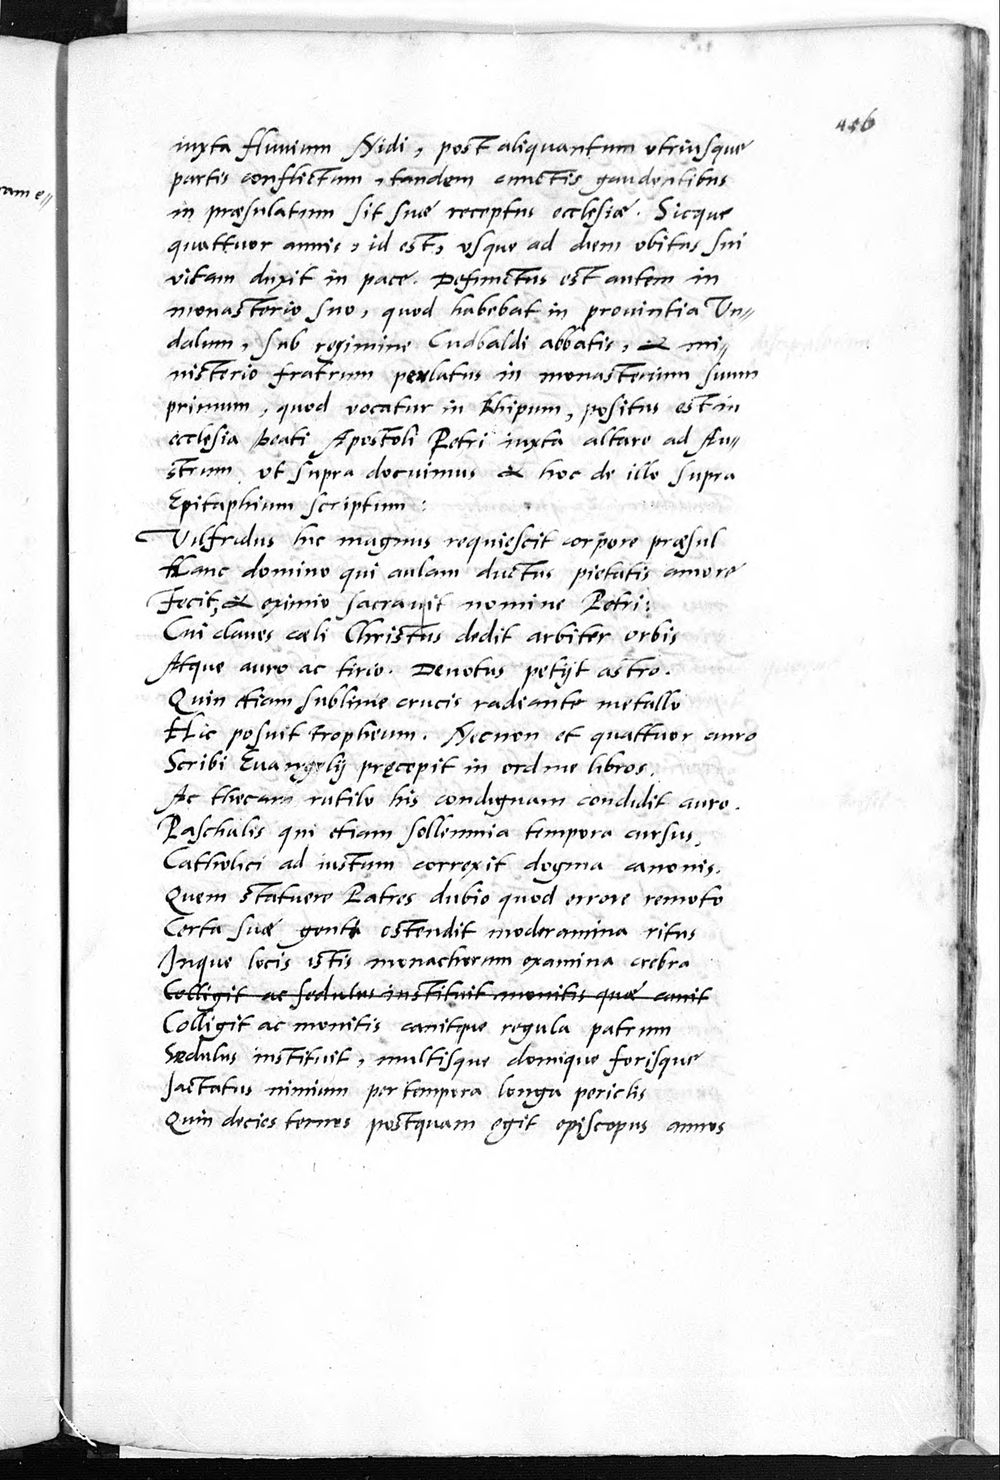 ram e//
456
iuxta fluuium Nidi, post aliquantum vtriusque
partis conflictum, tandem cunctis gaudentibus
in præsulatum sit suæ receptus ecclesiæ. Sicque
quattuor annis, id est, vsque ad diem obitus sui
vitam duxit in pace. Defunctus est autem in
monasterio suo, quod habebat in prouintia Vn//
dalum, sub regimine Cudbaldi abbatis, & mi//
nisterio fratrum perlatus in monasterium suum
primum, quod vocatur in Rhipum, positus est in
ecclesia beati Apostoli Petri iuxta altare ad Au//
strum, vt supra docuimus & hoc de illo supra
Epitaphium scriptum:
Vilfridus hic magnus requiescit corpore præsul
Hanc domino qui aulam ductus pietatis amore
Fecit, & eximio sacrauit nomine Petri:
Cui claues cæli Christus dedit arbiter orbis
Atque auro ac tirio. Deuotus petijt astro.
Quin etiam sublime crucis radiante metallo
Hic posuit tropheum. Necnon et quattuor auro
Scribi Euangelij precepit in ordine libros.
Ac thecam rutilo his condignam condidit auro.
Paschalis qui etiam sollemnia tempora cursus,
Catholici ad iustum correxit dogma canonis.
Quem statuere Patres dubio quod errore remoto
Certa suæ genti ostendit moderamina ritus
Inque locis istis monachorum examina crebra
Colligit ac sedulus instituit monitis quæ cauit
Colligit ac monitis canitque regula patrum
Sedulus instituit, multisque domique forisque
Iactatus nimium per tempora longa periclis
Quin decies ternos postquam egit episcopus annos